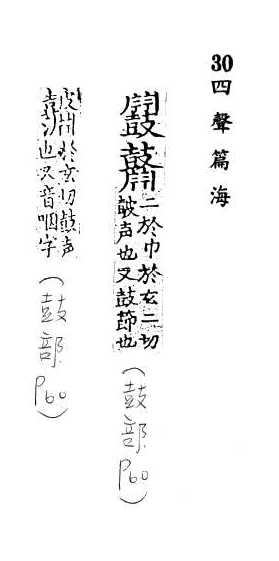 30四聲篇海
鼝鼘
二於巾於玄二切
皷声也又鼓節也
(鼓部P60)
於玄切鼓声
也又音咽字
(鼓部P60)